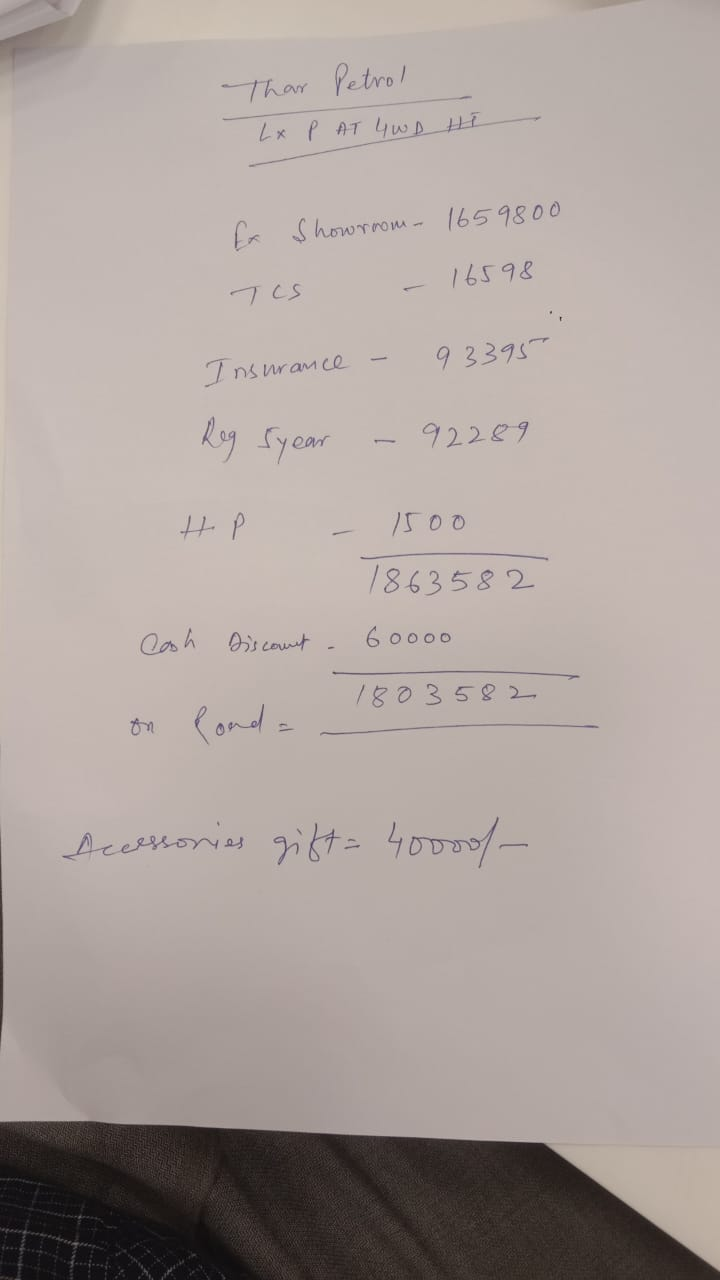 Thar Petrol
Lx P AT 4WD HT
Ex Showroom - 1659800
TCS - 16598
Insurance - 93395
Reg 5year - 92289
H P - 1500
1863582
Cash Discount - 60000
1803582
on Road =
Accessories gift = 40000/-